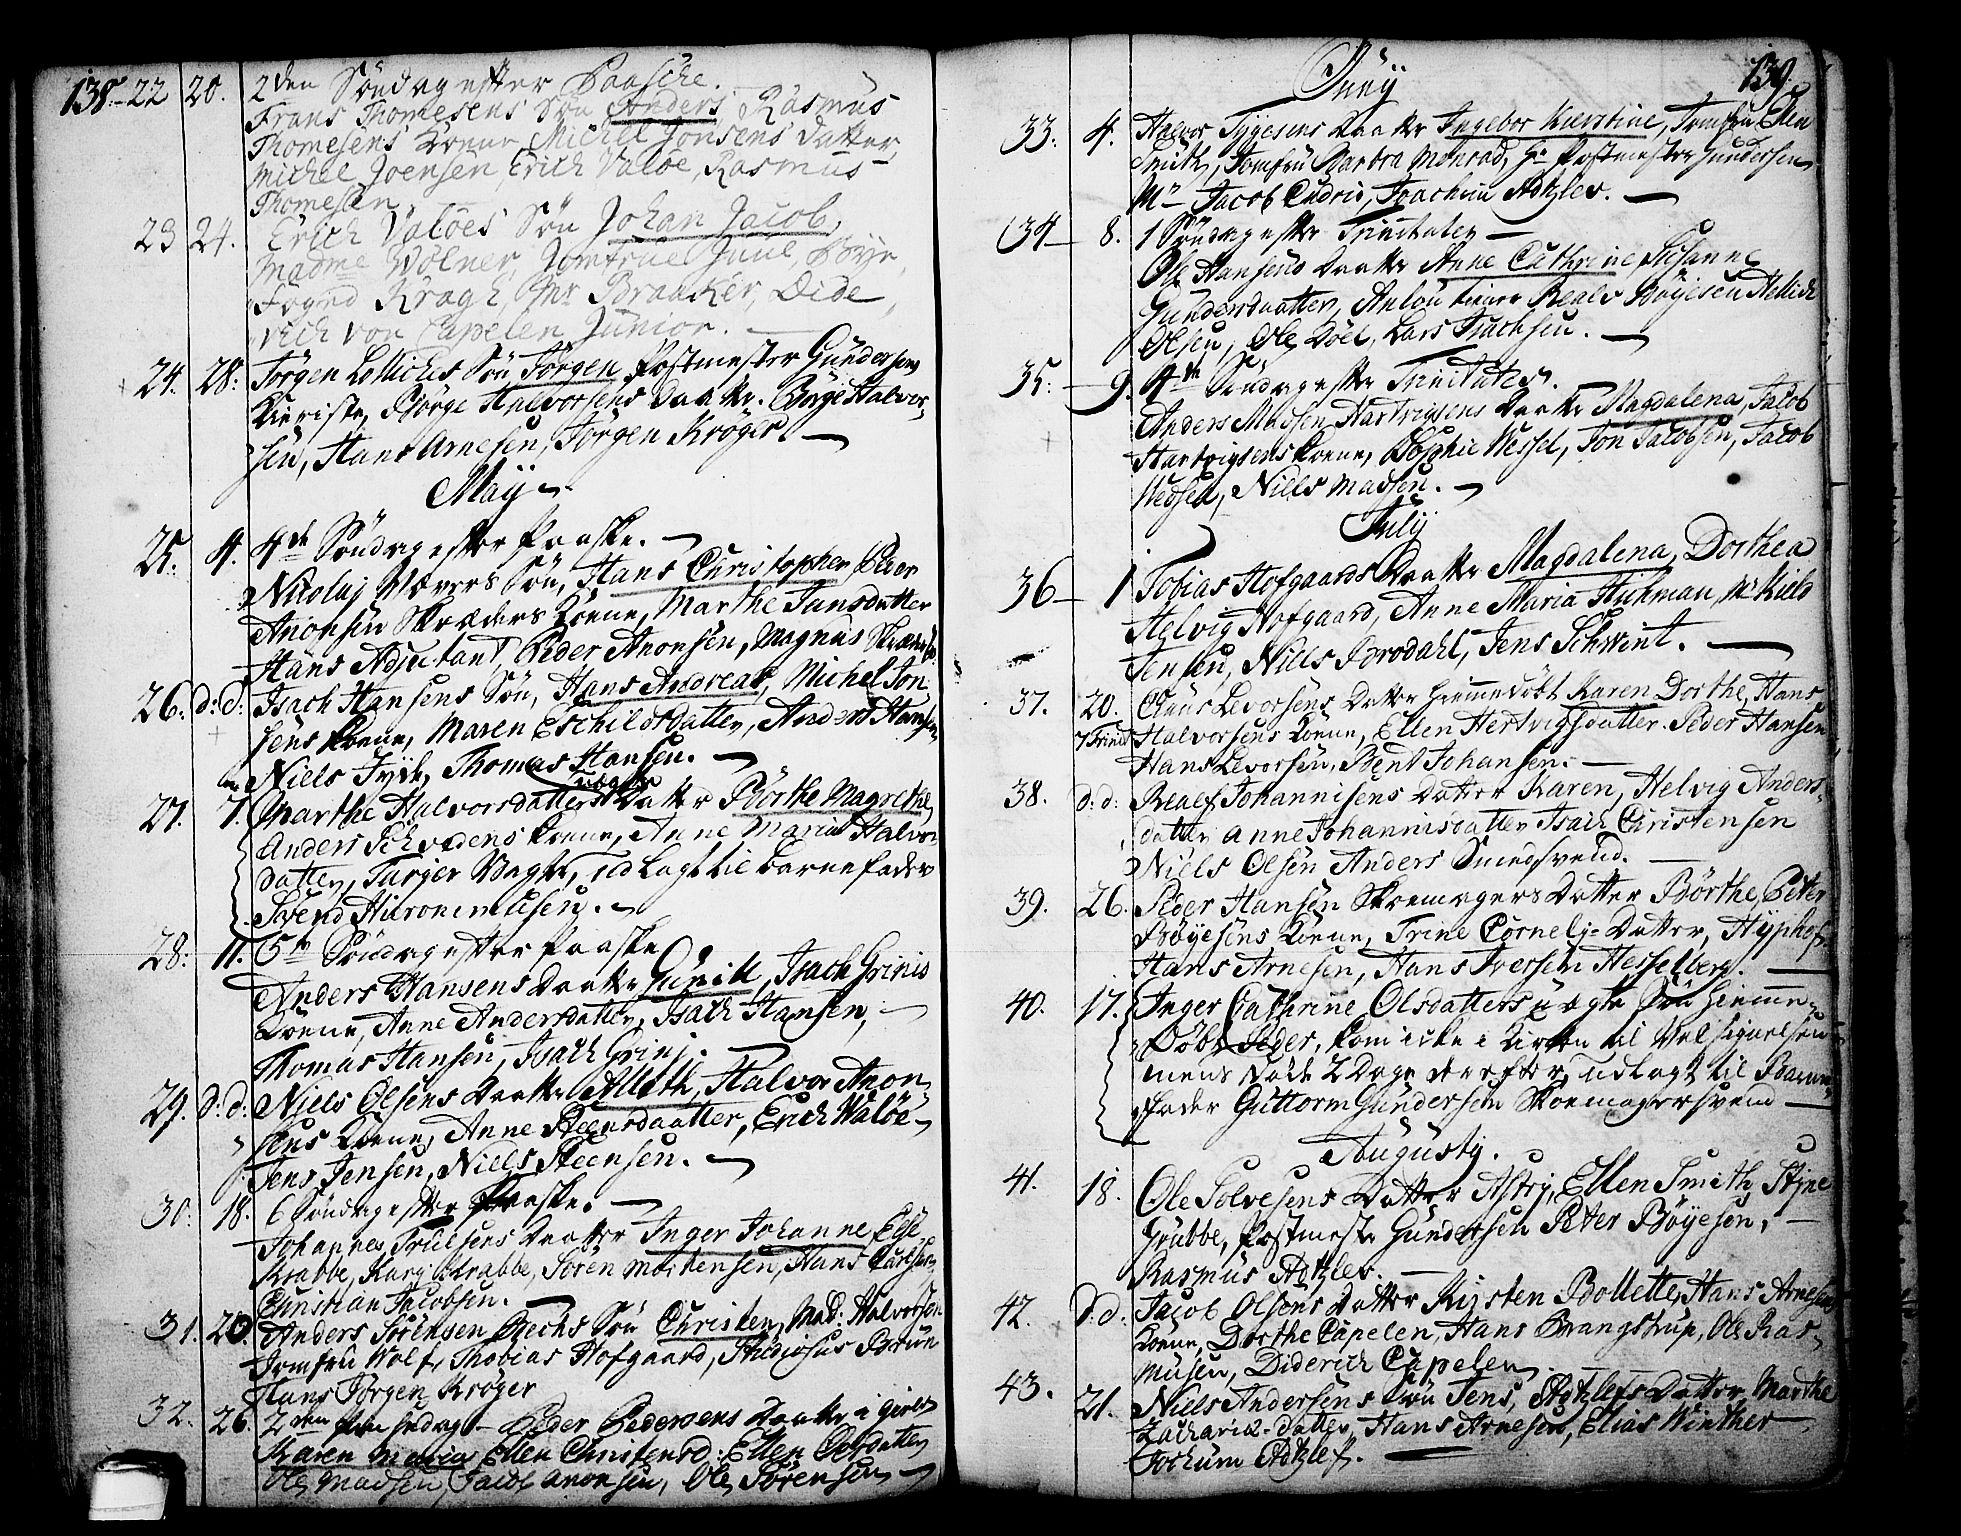 138.
22 20. 2den Söndag efter Paasche.
Frans Thomesens Sön Anders, Rasmus
Thomesens Koene, Michel Jonsens Datter,
Michel Joensen, Erich Valöe, Rasmus
Thomesen
23 24. Erich Valöes Sön Johan Jacob,
Madme Wölner, Jomfrue Juul, Böye
Fogud Kragh, Mr Braaker, Dide
rich von Capelen Junior.
24. 28: Jörgen Lolliches Sön Jörgen, Postmester Gundersens
Kieriste, Börge Halvorsens Daatter. Börge Halvor-
sen, Hans Arnesen, Jörgen Kröger.
Maij
25. 4. 4de Söndag efter Paaske.
Nicolaj Wævers Sön, Hans Christopher, Peder
Anonsen Skræders Koene, Marthe Jansdatter
Hans Adjutant, Peder Anonsen, Magnus
26. d: d: Isach Hansens Sön, Hans Andreas, Michel Jon
sens Koene, Maren Eschildsdatter, Anders Hansen
Niels Jyde, Thomas Hansen.
27. 7. Marthe Halvorsdatters uægte Datter Börthe Magrethe,
Anders Schvedens Koene, Anne Maria Halvors
datter, Turger Vagt, udlagt til Barnefader
Svend Hieronimusen.
28. 11. 5te Söndag efter Paaske
Anders Hansens Daatter Gunild, Isach Grinis
Koene, Anne Andersdatter, Isach Hansen,
Thomas Hansen, Isach Grini.
29. d: d: Niels Olsens Daatter Alleth, Halvor Anon-
sens Koene, Anne Steensdaatter, Erich Walöe
Jens Jensen, Niels Steensen.
30. 18. 6 Söndag efter Paaske.
Johannes Truelsens Daatter Inger Johanne,
Krabbe, Karj Krabbe, Sören Mortensen, Hans Carlsen
Christian Jacobsen.
31. 20. Anders Sörensen Bechs Sön Christen, Mad: Halvorsen
Jomfru Wolf, Thobias Hofgaard, Thidiosus Brun
Hans Jörgen Kröger
32. 26. 2den Pintzedag Peder Pedersens Daatter i
Karen Maria Ellen Christensd: Ellen Olsdatter
Ole Madsen, Jacob Anonsen, Ole Sörensen
139.
Junij
33. 4. Halvor Tygesens Daatter Ingebor Kierstine, Jomfru Elen
Smith, Jomfru Barbra Monrad, Hr Postmester Gundersen
Mr Jacob Cudrio, Joachim Adtzlev.
34 8. 1 Söndag efter Trinitatis
Ole Hansens Daatter Anne Cathrine, Susanne
Gundersdaatter, Reals Böyesen
Olsen, Ole Döel, Lars Isachsen.
35. 9. 4de Söndag efter Trinitatis.
Anders Madsen Hartvigsens Daatter Magdalena, Jacob
Hartvigsens Koene, Sophie Wessel, Jon Jacobsen, Jacob
Madsen, Niels Madsen.
Julij
36 1 Tobias Hofgaards Daatter Magdalena, Dorthea
Helvig Hofgaard, Anne Maria Hichman, Mr Niels
Jensen, Niels Brodahl, Jens Schwint.
37. 20. Claus Levorsens Datter Hiemmedöbt Karen Dorthe, Hans
7 Trinit Halvorsens Koene, Ellen Hertvigsdatter. Peder Hansen
Hans Levorsen, Bent Johansen.
38. d: d: Realf Johannisens Datter Karen, Helvig Anders-
datter Anne Johannisdatter Isach Christensen
Niels Olsen Anders Smedsvend.
39. 26. Peder Hansen Skoemagers Datter Börthe, Peter
Böyesens Koene, Trine Cornelj-Datter, Hyphof
Hans Arnesen, Hans Iversen Hesselberg.
40. 17. Inger Cathrine Olsdatters uægte Sön Hiemme-
Döbt Peder, kom icke i Kirken til Velsignelsen
mens döde 2 Dage derefter, udlagt til Barne-
fader Guttorm Gundersen Skoemagersvend
Augustj.
41. 18. Ole Solvesens Datter Astrj, Ellen Smith, Stjne
Grubbe, Postmester Gundersen Peter Böyesen,
Rasmus Adtzlev.
42. d: d: Jacob Olsens Datter Kirsten Bollette, Hans Arnesens
Koene, Dorthe Capelen, Hans Brangstrup, Ole Ras-
musen, Diderich Capelen
43. 21. Niels Andersens Sön Jens, Adtzlefs Datter, Marthe
Zacharia-datter, Hans Arnesen, Elias Winther
Jochum Adtzlef.